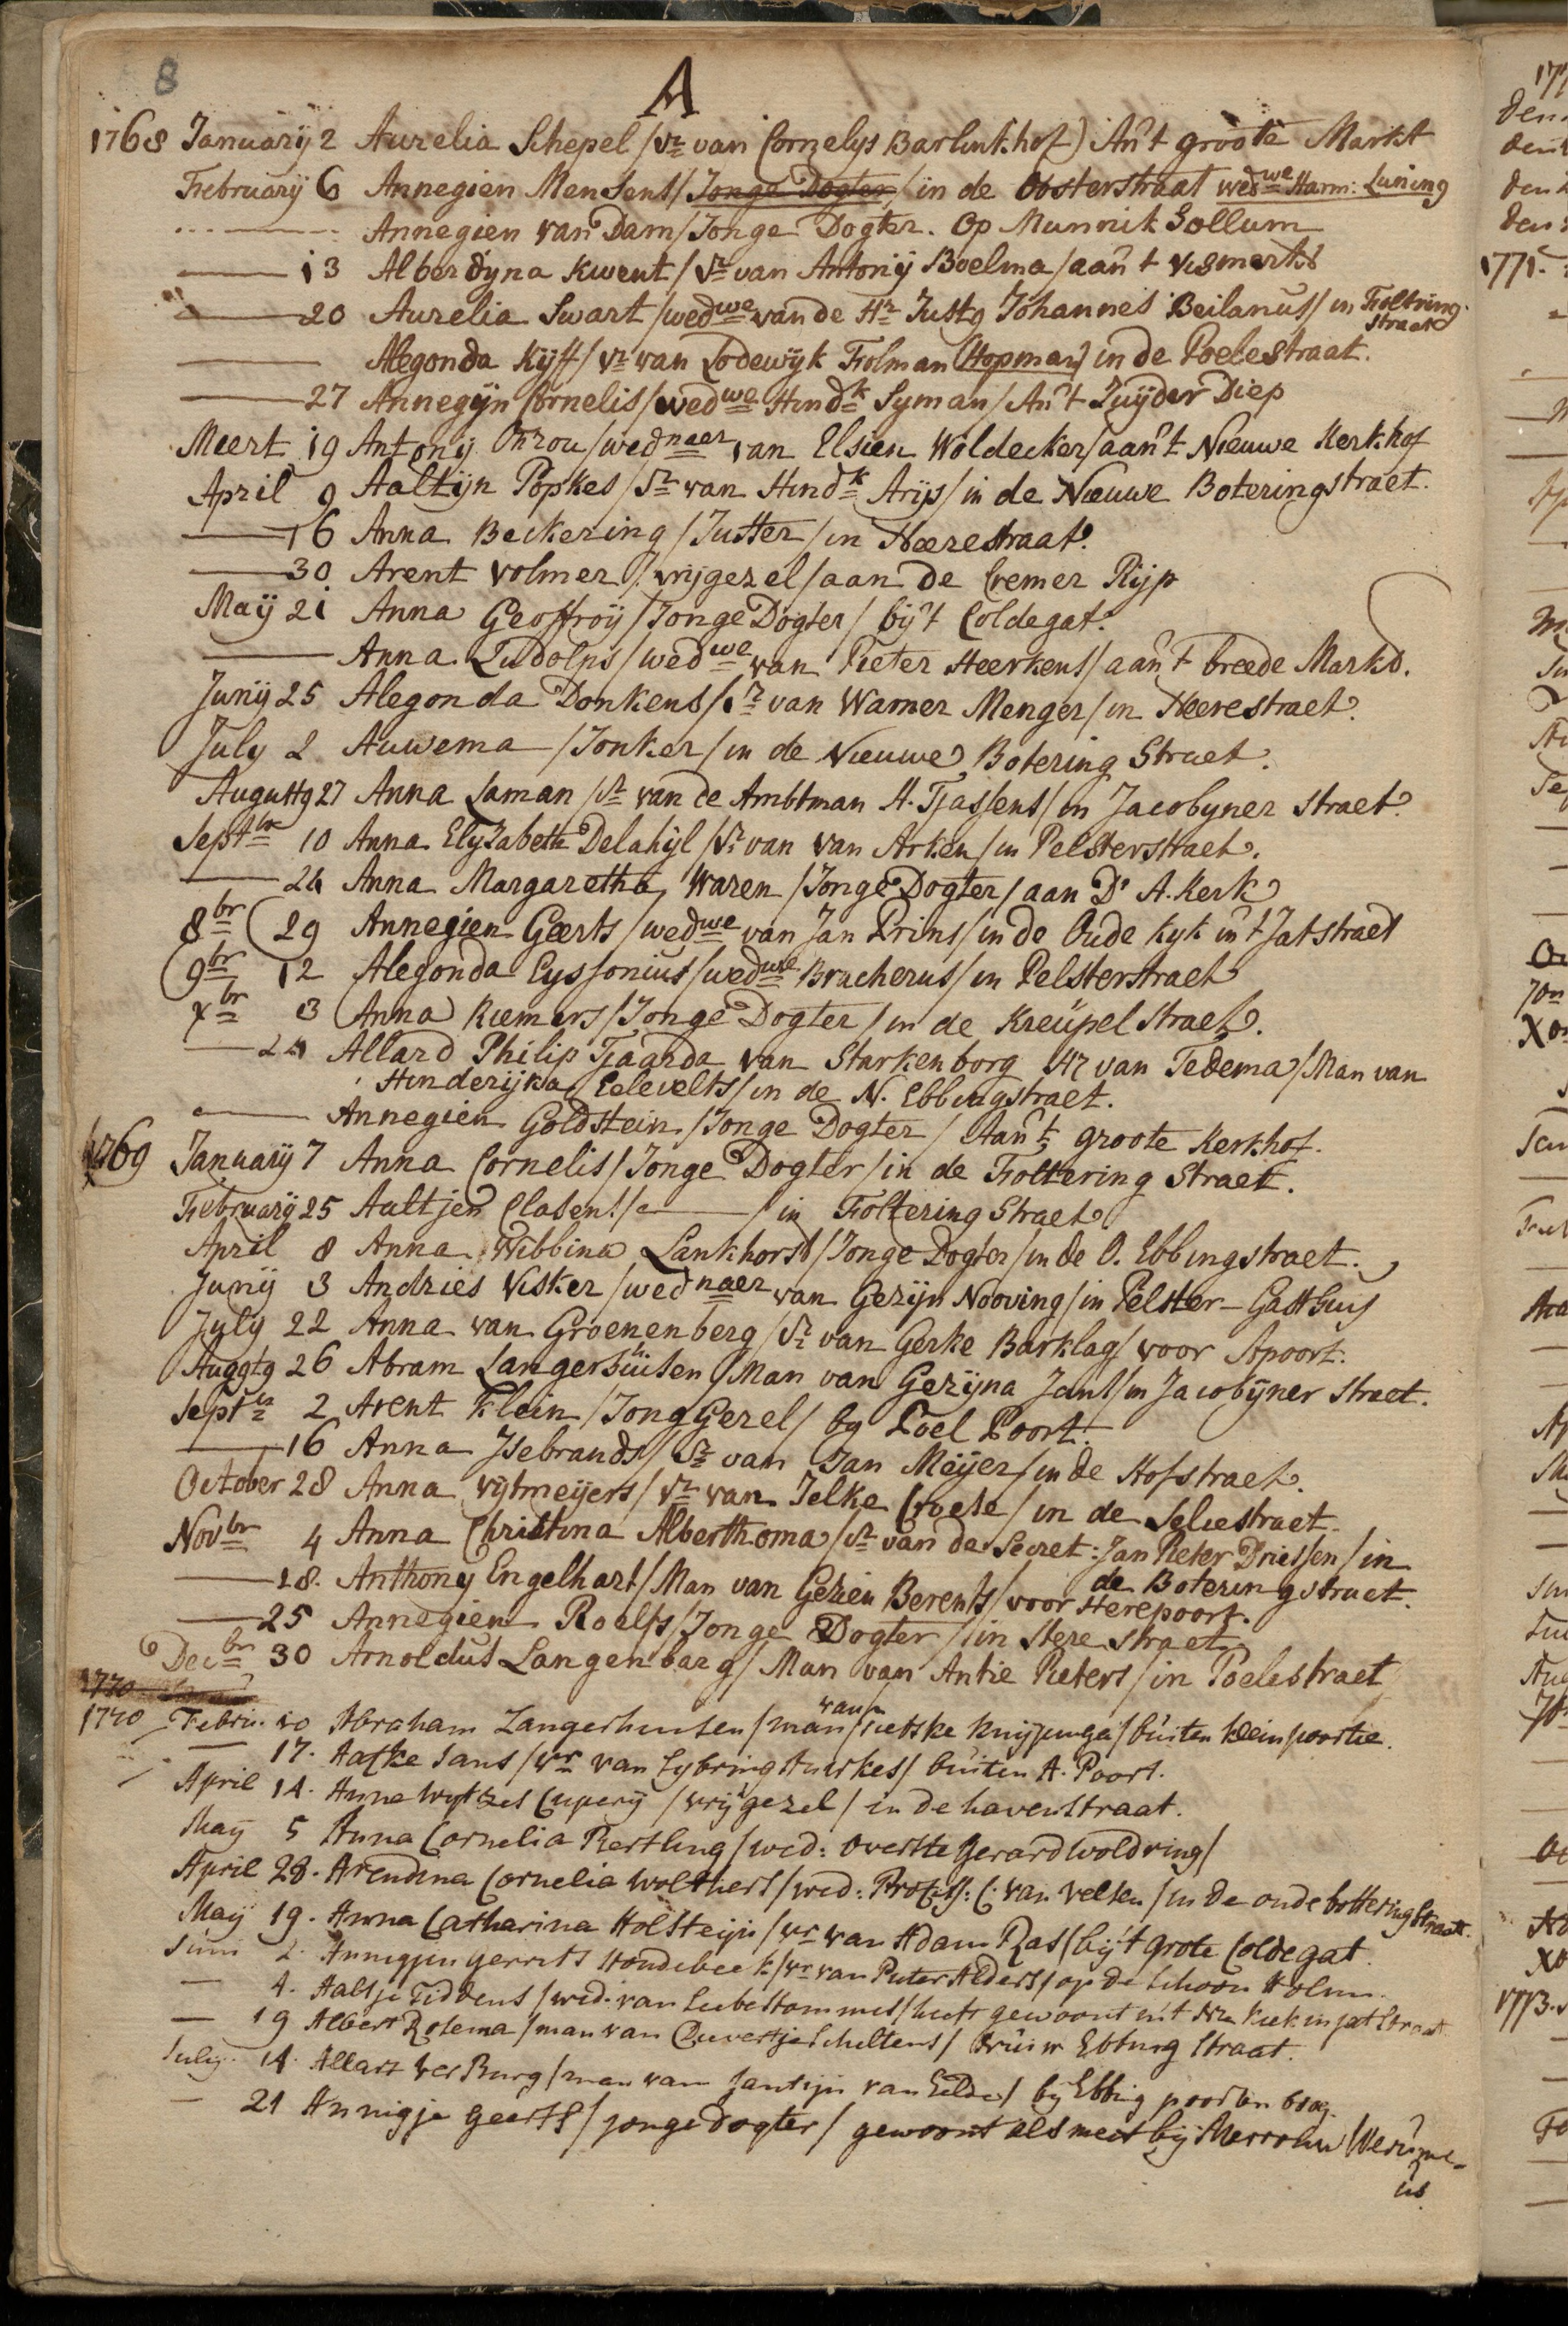 8
A
1768 Januarij 2 Aurelia Schepel / Vr van Cornelys Barlinkhof) An't groote Markt
February 6 Annegien Mensens / Jonge Dogter / in de Oosterstraat wedwe Harm: Luning
Annegien van Dam / Jonge Dogter. Op Munnik Hollum
13 Alberdyna Kwent / Vr van Antonij Boelma / aan't Vismerkt
20 Aurelia Swart / wedwe van de Hr Justg Johannes Beilanus / in Folkring
straat
Alegonda Kyff / Vr van Lodewyk Folman (Hopman) in de Poelestraat.
27 Annegijn Cornelis / wedwe Hindk Syman / An't Zuijder Diep
Meert 19 Antony / wednaer van Elsien Woldecker / aan't Nieuwe Kerkhof
April 9 Aaltijn Popkes / Vr van Hindk Arijs / in de Nieuwe Boteringstraet.
16 Anna Beckering / Juffer / in Heerestraat.
30 Arent Volmer / vrijgezel / aan de Cremer Rijp
Maij 21 Anna Geoffroij / Jonge Dogter / bij't Coldegat.
Anna Ludolfis / wedwe van Pieter Heerkens / aan't breede Markd.
Junij 25 Alegonda Donkens / Vr van Warner Menger / in Heerestraet.
July 2 Auwema / Jonker / in de Nieuwe Botering Straet.
Augustg 27 Anna Laman / Vr van de Ambtman H. Tjassens / in Jacobyner straet.
Septbr 10 Anna Elyzabeth Delahyl / Vr van van Arken / in Pelsterstraet.
24 Anna Margaretha Waren / Jonge Dogter / aan Dr A. Kerk
8br 29 Annegien Geerts / wedwe van Jan Prins / in de Oude Kyk in't Jatstraet
9br 12 Alegonda Eyssonius / wedwe Bracherus / in Pelsterstraet
Xbr 3 Anna Riemers / Jonge Dogter / in de Kreupelstraet.
24 Allard Philip Tjaarda van Starkenborg Hr van Tedema / Man van
Hinderijka Eelevelts / in de N. Ebbingstraet.
Annegien Goldstein / Jonge Dogter / Aan't groote Kerkhof.
1769 January 7 Anna Cornelis / Jonge Dogter / in de Foltering Straet.
February 25 Aaltjen Clasens / — / in Foltering Straet
April 8 Anna Wibbina Lankhorst / Jonge Dogter / in de O. Ebbingstraet.
Junij 3 Andries Visker / wednaer van Gezijn Nooving / in Pelster-Gasthuis
July 22 Anna van Groenenberg / Vr van Gerke Barklag / voor Apoort.
Auggtg 26 Abram Langerhuisen / Man van Gezijna Jans / in Jacobijner straet.
Septbr 2 Arent Klein / Jong Gezel / by Poel Poort.
16 Anna Ysebrands / Vr van Jan Meijer / in de Hofstraet.
October 28 Anna Vijtmeijers / Vr van Jelke Croese / in de Seliestraet.
Novbr 4 Anna Christina Alberthoma / Vr van de Secret: Jan Pieter Driessen / in
de Boteringstraet.
18. Anthony Engelhart / Man van Gezien Berents / voor Herepoort.
25 Annegien Roelfs / Jonge Dogter / in Herestraet
Decbr 30 Arnoldus Langenbarg / Man van Antie Pieters / in Poelestraet
1770
1770 Febru. 10 Abraham Langerhuisen / man van Sietske Knijpinga / buiten kleinpoortie.
17. Aafke Jans / Vr van Sybring Huirkes / buiten A. Poort.
April 14. Anne Wytzes Cuperij / vrijgezel / in de havenstraat.
Maij 5 Anna Cornelia Rertling / wed: Overste Gerard Woldring /
April 28. Arendina Cornelia Wolthers / wed: Profess: C: van Velsen / in de oude bottering Straat.
Maij 19. Anna Catharina Holsteijn / vr van Adam Ras / bij't grote Coldegat
Juni 2. Annigjen Gerrits Hondebeek / vr van Pieter Alders / op de Schoon Holm.
4. Aaltje Tiddens / wed. van Luebe Hommes / heeft gewoont in't Nw Kiekinjatstraat
19 Albert Rosema / man van Euvertje Scheltens / Ebbing Straat.
July. 14. Allart ver Burg / man van Jantijn van Eelde / bij Ebbing poorten boog.
21 Annigje Geerts / jonge dogter / gewoont als meet bij Mevrouw Werume-
us